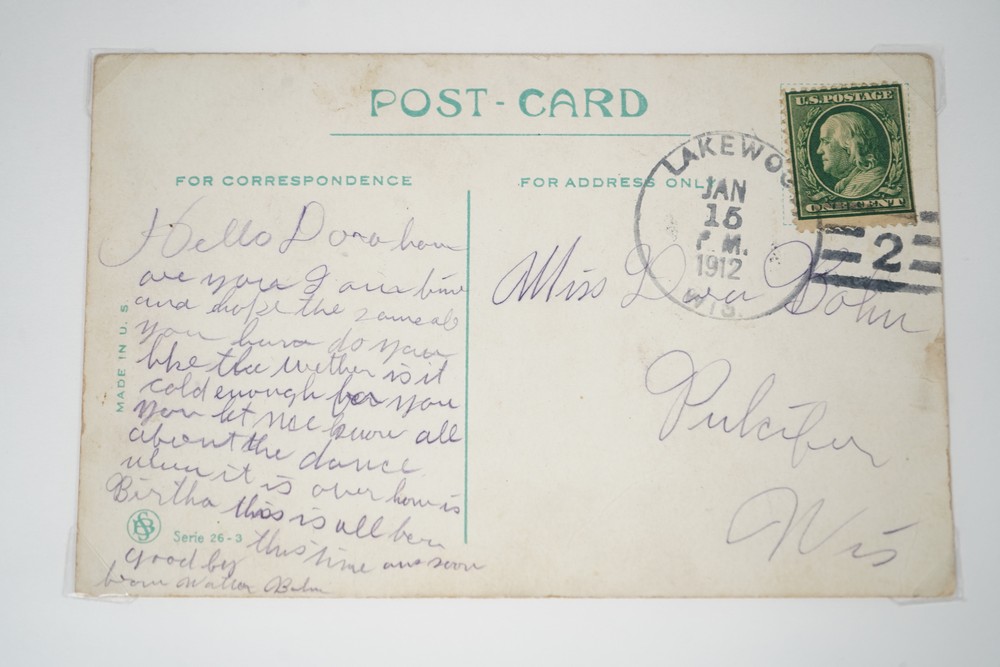 POST-CARD
U.S.POSTAGE
ONE CENT
LAKEWOO
JAN
15
P.M.
1912
WIS.
2
FOR CORRESPONDENCE
FOR ADDRESS ONLY
Hello Dora how
are you I am fine
and hope the same of
you how do you
like the wether is it
cold enough for you
you let me know all
about the dance
when it is over how is
Birtha this is all for
this time ans soon
good by
from Walter Bohn
MADE IN U.S
Serie 26-3
Miss Dora Bohn
Pulcifer
Wis